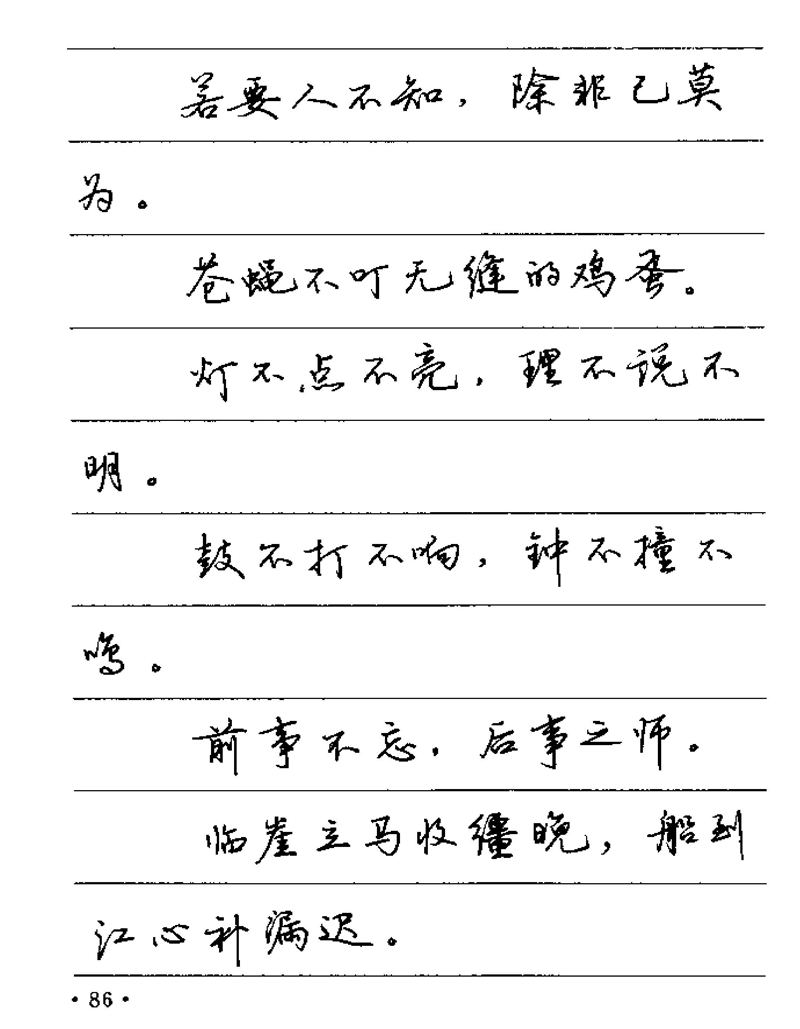 若要人不知，除非己莫
为。
苍蝇不叮无缝的鸡蛋。
灯不点不亮，理不说不
明。
鼓不打不响，钟不撞不
鸣。
前事不忘，后事之师。
临崖立马收缰晚，船到
江心补漏迟。
·86·